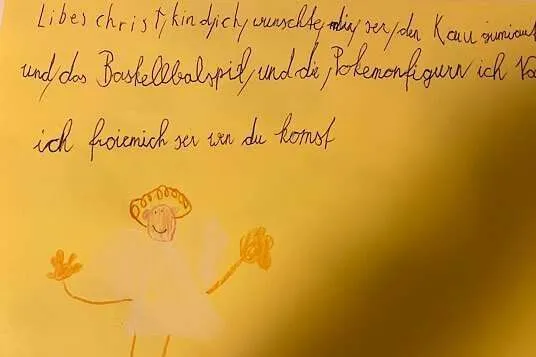 Libes christ/kind/ich/wunschte/mir/ser/den Kau
und/das Baskellbalspil/und die/Pokemonfigurn ich
ich froiemich ser wen du komst